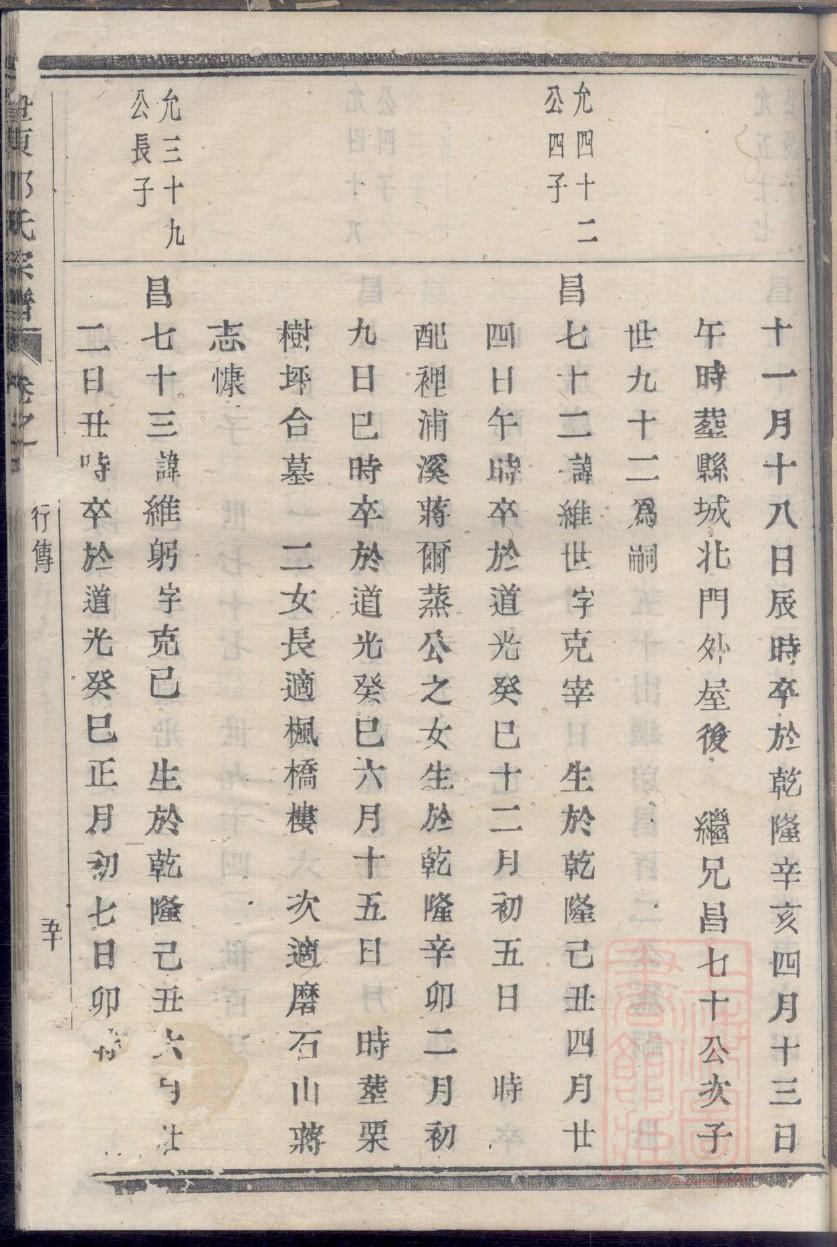 十一月十八日辰時卒於乾隆辛亥四月十三日
午時塟縣城北門外屋後　繼兄昌七十公次子
世九十二爲嗣
允四十二
公四子
昌七十二諱維世字克宰　生於乾隆己丑四月廿
四日午時卒於道光癸巳十二月初五日　時
配裡浦溪蔣爾蒸公之女生於乾隆辛卯二月初
九日巳時卒於道光癸巳六月十五日　時塟栗
樹坪合墓　二女長適楓橋樓　次適磨石山蔣
志慷
允三十九
公長子
昌七十三諱維躬字克己　生於乾隆己丑六月廿
二日丑時卒於道光癸巳正月初七日卯時
氏宗譜
卷之
行傳
五十